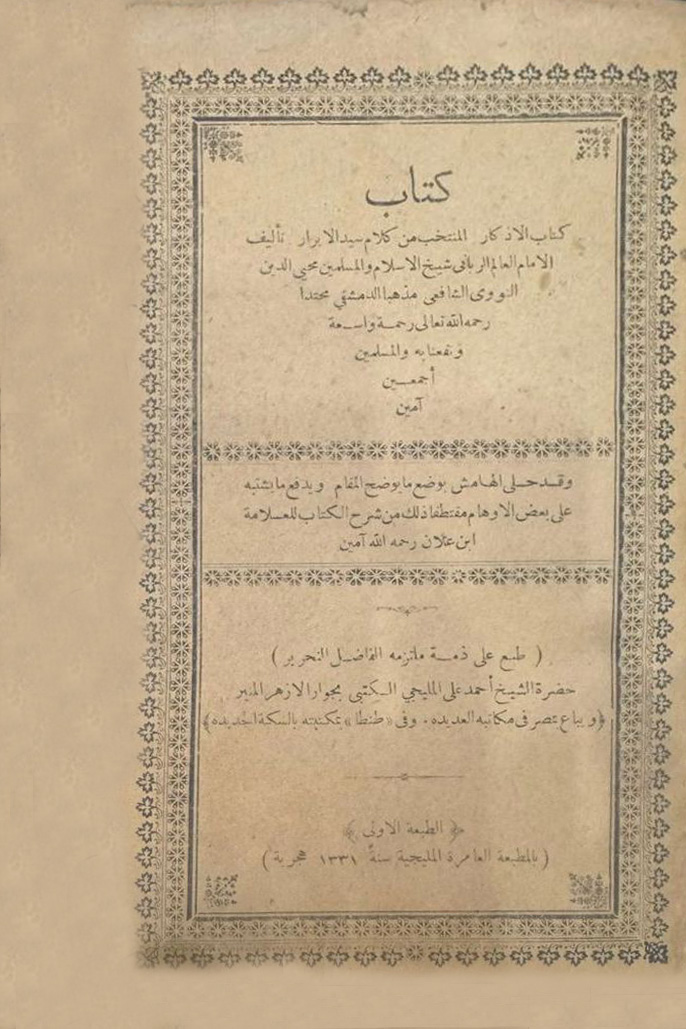 كتاب
كتاب الاذكار المنتخب من كلام سيد الابرار تأليف
الامام العالم الربانى شيخ الاسلام والمسلمين محيى الدين
النووى الشافعى مذهبا الدمشقي محتدا
رحمه الله تعالى رحمة واسعة
ونفعنا به والمسلمين
أجمعين
آمين
وقد حلى الهامش بوضع ما يوضح المقام ويدفع ما يشتبه
على بعض الاوهام مقتطفا ذلك من شرح الكتاب للعلامة
ابن علان رحمه الله آمين
( طبع على ذمة ملتزمه الفاضل النحرير )
حضرة الشيخ أحمد على المليجي الكتبي بجوار الازهر المنير
﴿ ويباع بمصر فى مكاتبه العديده . وفى « طنطا » بمكتبته بالسكة الجديده ﴾
﴿ الطبعة الاولى ﴾
( بالمطبعة العامرة المليجية سنة ١٣٣١ هجرية )